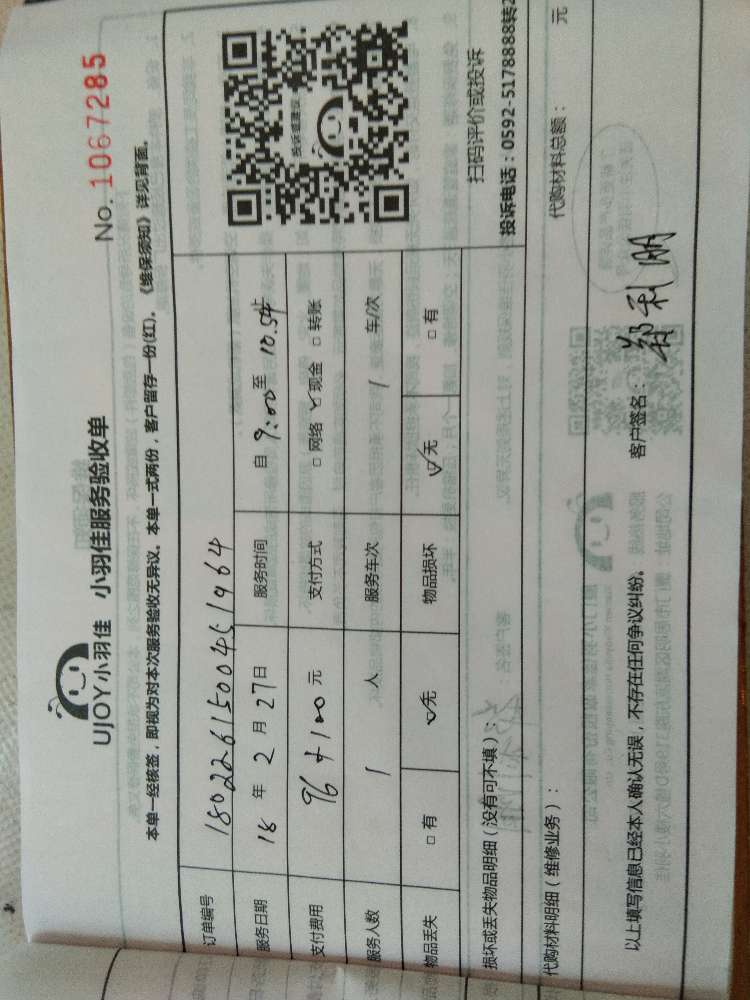 UJOY小羽佳 小羽佳服务验收单
No. 1067285
本单一经核签，即视为对本次服务验收无异议。本单一式两份，客户留存一份(红)。《维保须知》详见背面。
订单编号 180226150045 1964
服务日期 18 年 2 月 27 日 服务时间 自 9:00 至 10.54 止
支付费用 96+100 元 支付方式 □ 网络 ✓ 现金 □ 转账
服务人数 1 人 服务车次 1 车/次
物品丢失 □ 有 ✓无 物品损坏 ✓无 □ 有
投诉或建议
扫码评价或投诉
投诉电话：0592-5178888转2
损坏或丢失物品明细（没有可不填）：
代购材料明细（维修业务）： 代购材料总额： 元
以上填写信息已经本人确认无误，不存在任何争议纠纷。 客户签名：